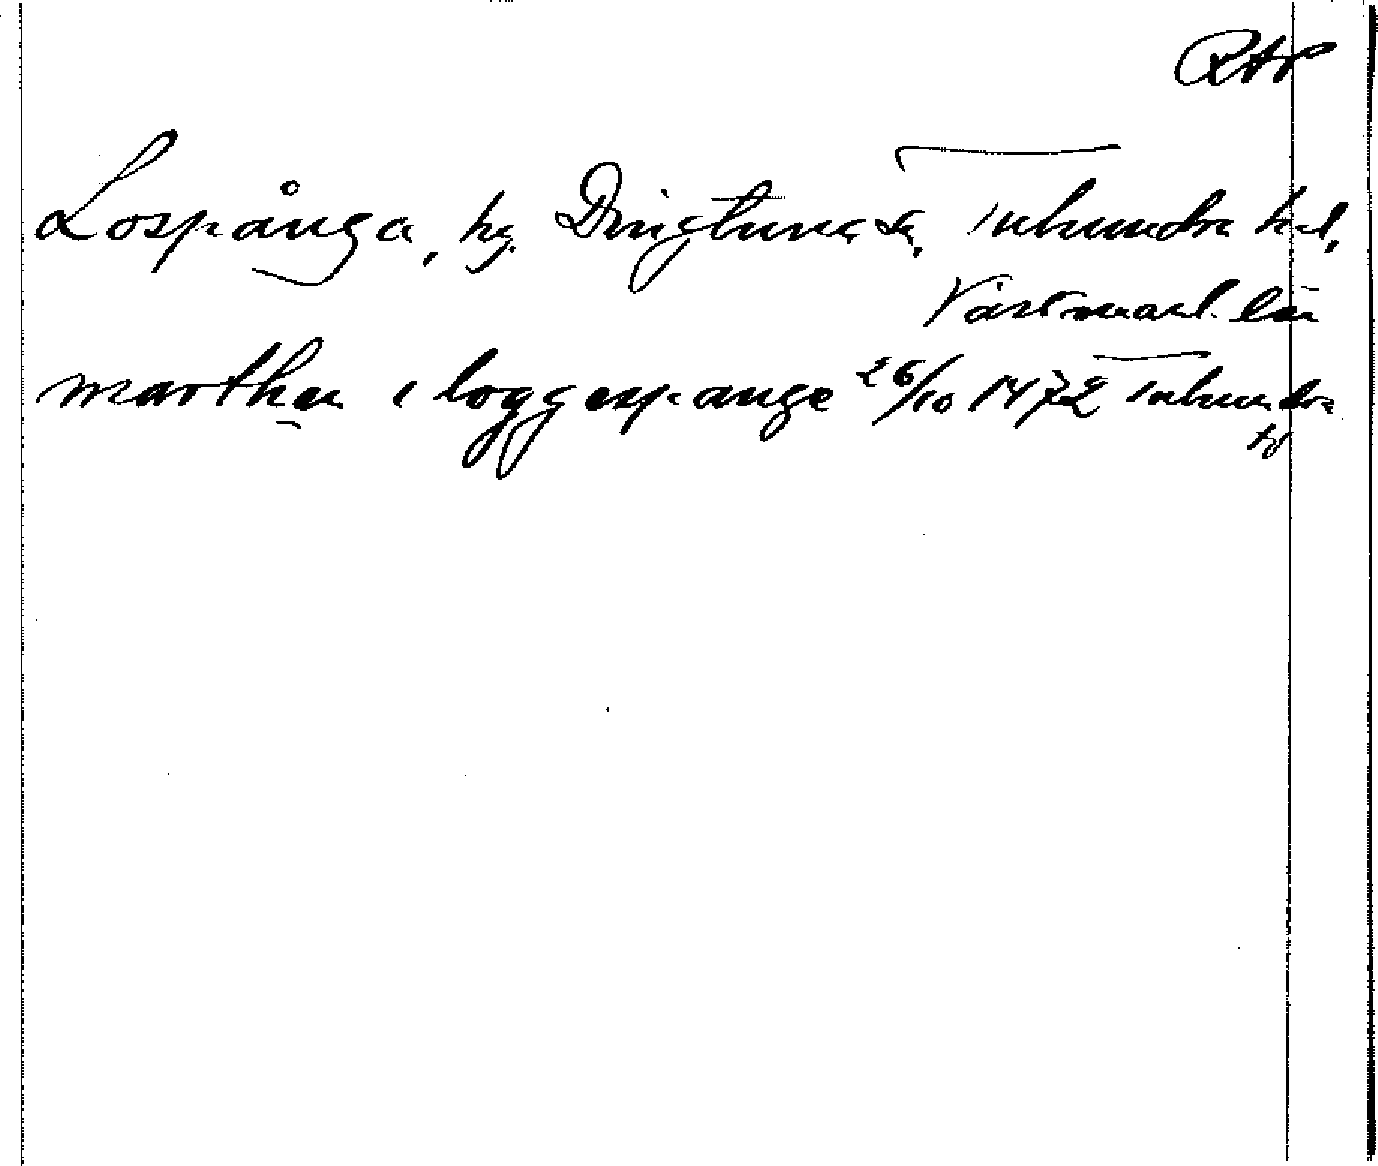 RAP
Lospånga, hg. Dingtuna sn, Tuhundra hd,
Västmanl. län
marthen i loggespange 26/10 1472 tuhundra